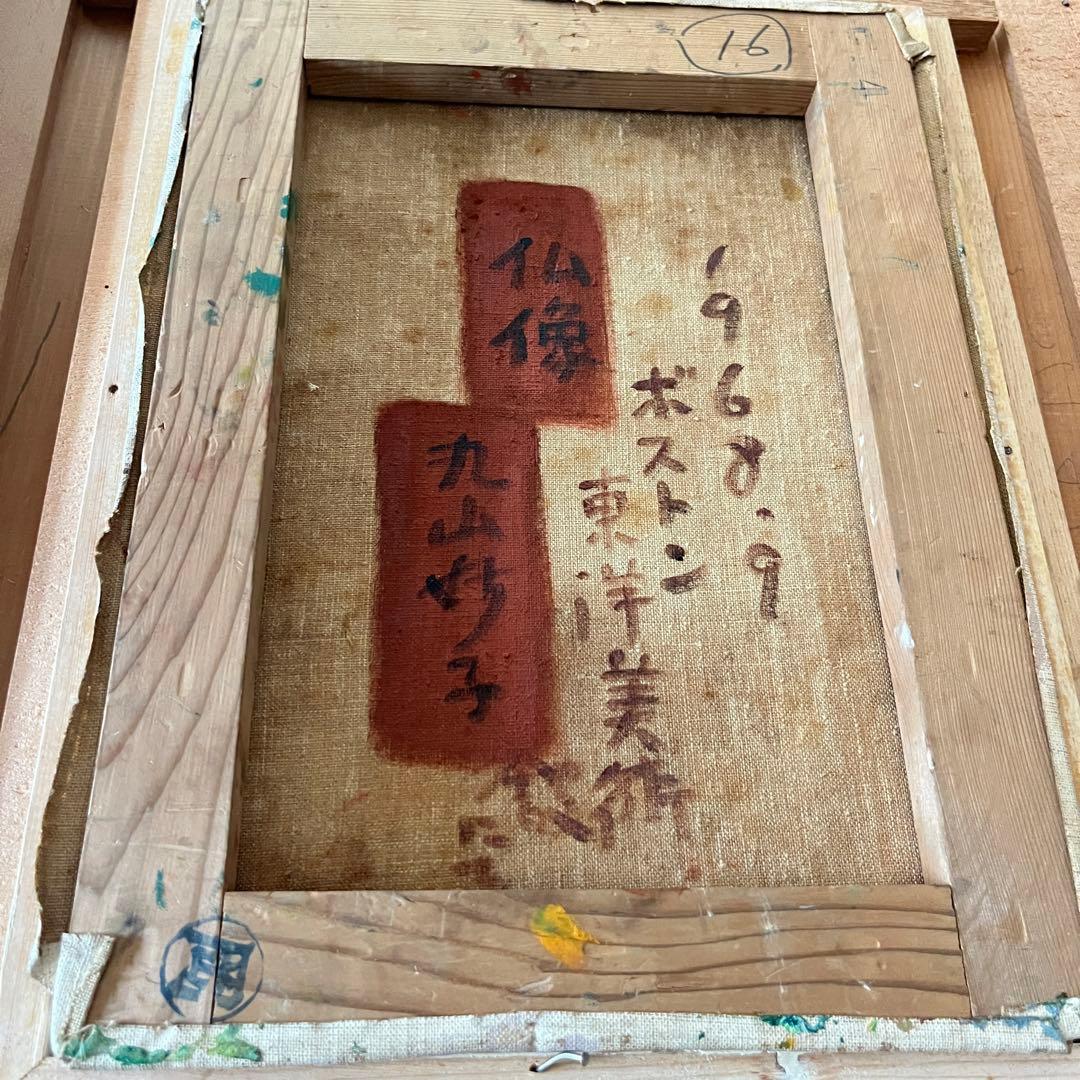 16
F-4
1968.9
ボストン
東洋美術
館
仏像
丸山妙子